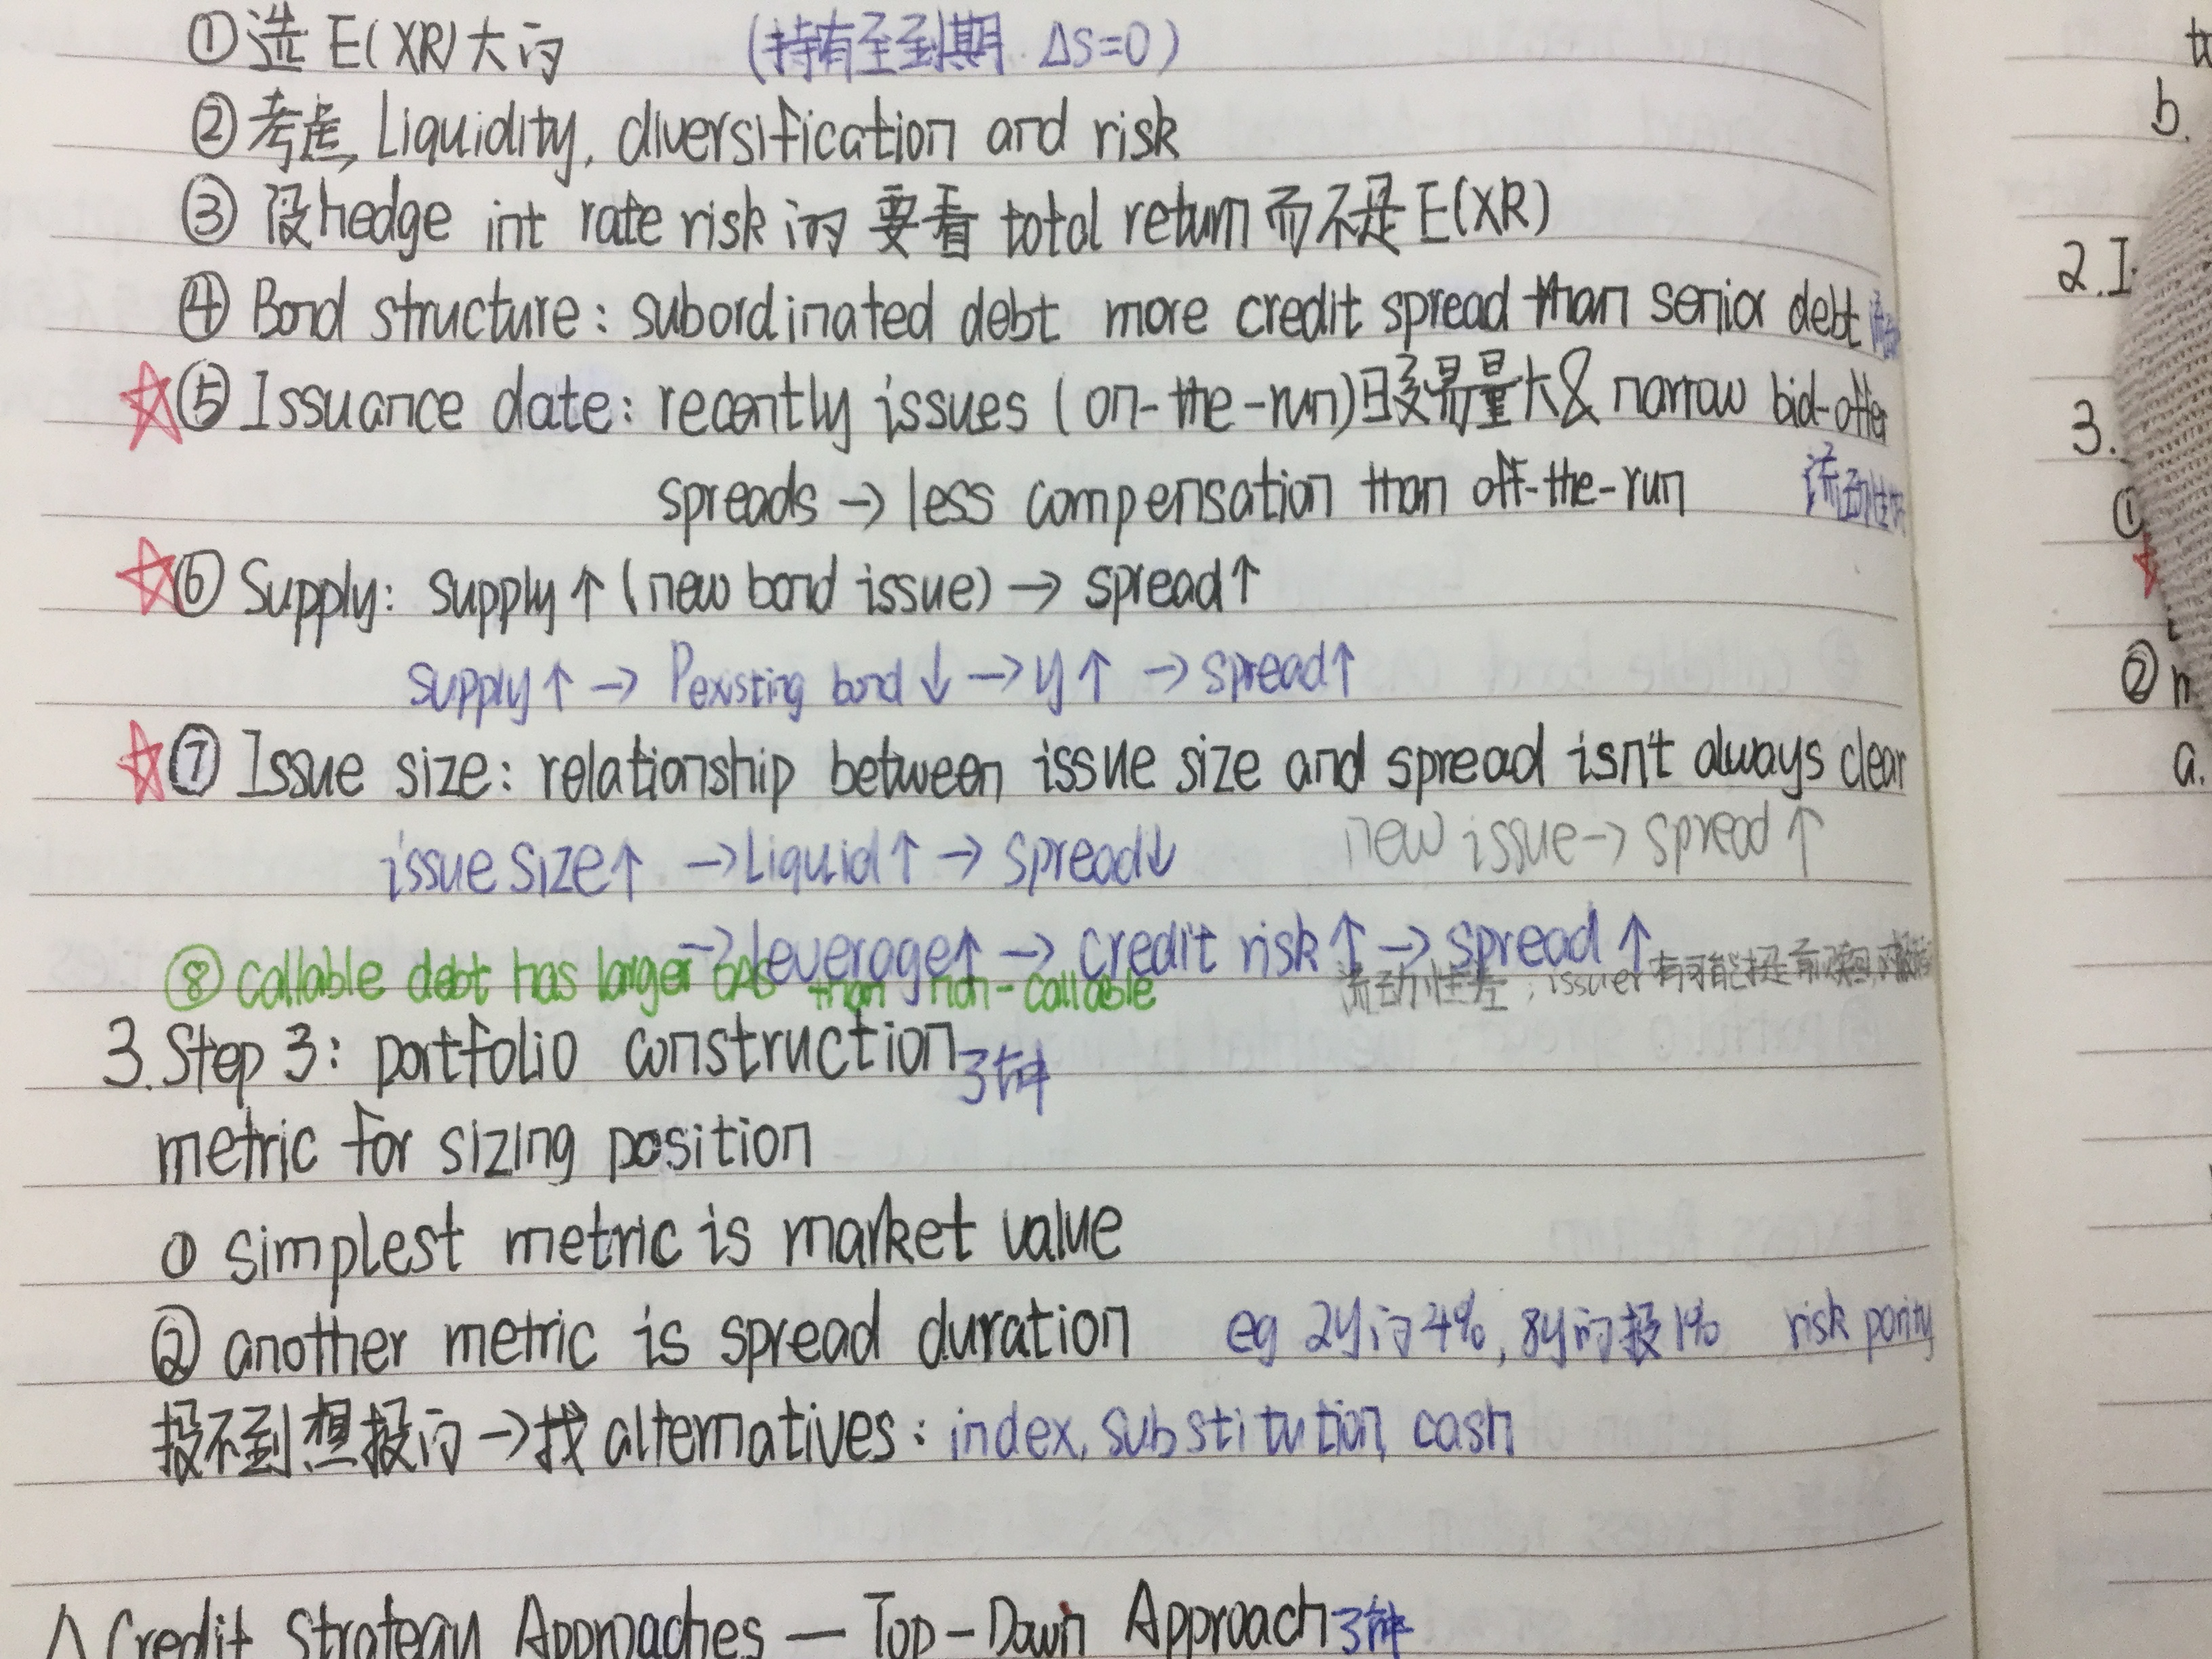 ①选 E(XR)大的 (持有至到期 ΔS=0)
②考虑 Liquidity, diversification and risk
③ 没hedge int rate risk的 要看 total return 而不是 E(XR)
④ Bond structure: subordinated debt more credit spread than senior debt
☆⑤ Issuance date: recently issues (on-the-run)日交易量大& narrow bid-offer
spreads → less compensation than off-the-run 流动性
☆⑥ Supply: supply↑ (new bond issue) → spread↑
supply↑ → Pexisting bond ↓ → y↑ → spread↑
☆⑦ Issue size: relationship between issue size and spread isn't always clear
issue size↑ → Liquid↑ → spread↓ new issue → spread↑
→ leverage↑ → credit risk↑ → spread↑
⑧ callable debt has larger OAS than non-callable 流动性差; issuer有可能提前
3. Step 3: portfolio construction 3种
metric for sizing position
① simplest metric is market value
② another metric is spread duration eg 2y的4%, 8y的投1% risk parity
投不到想投的→找 alternatives: index, substitution, cash
Credit Strategy Approaches — Top-Down Approach 3种
tr
b.
2.I
3.
①
☆
②
a.